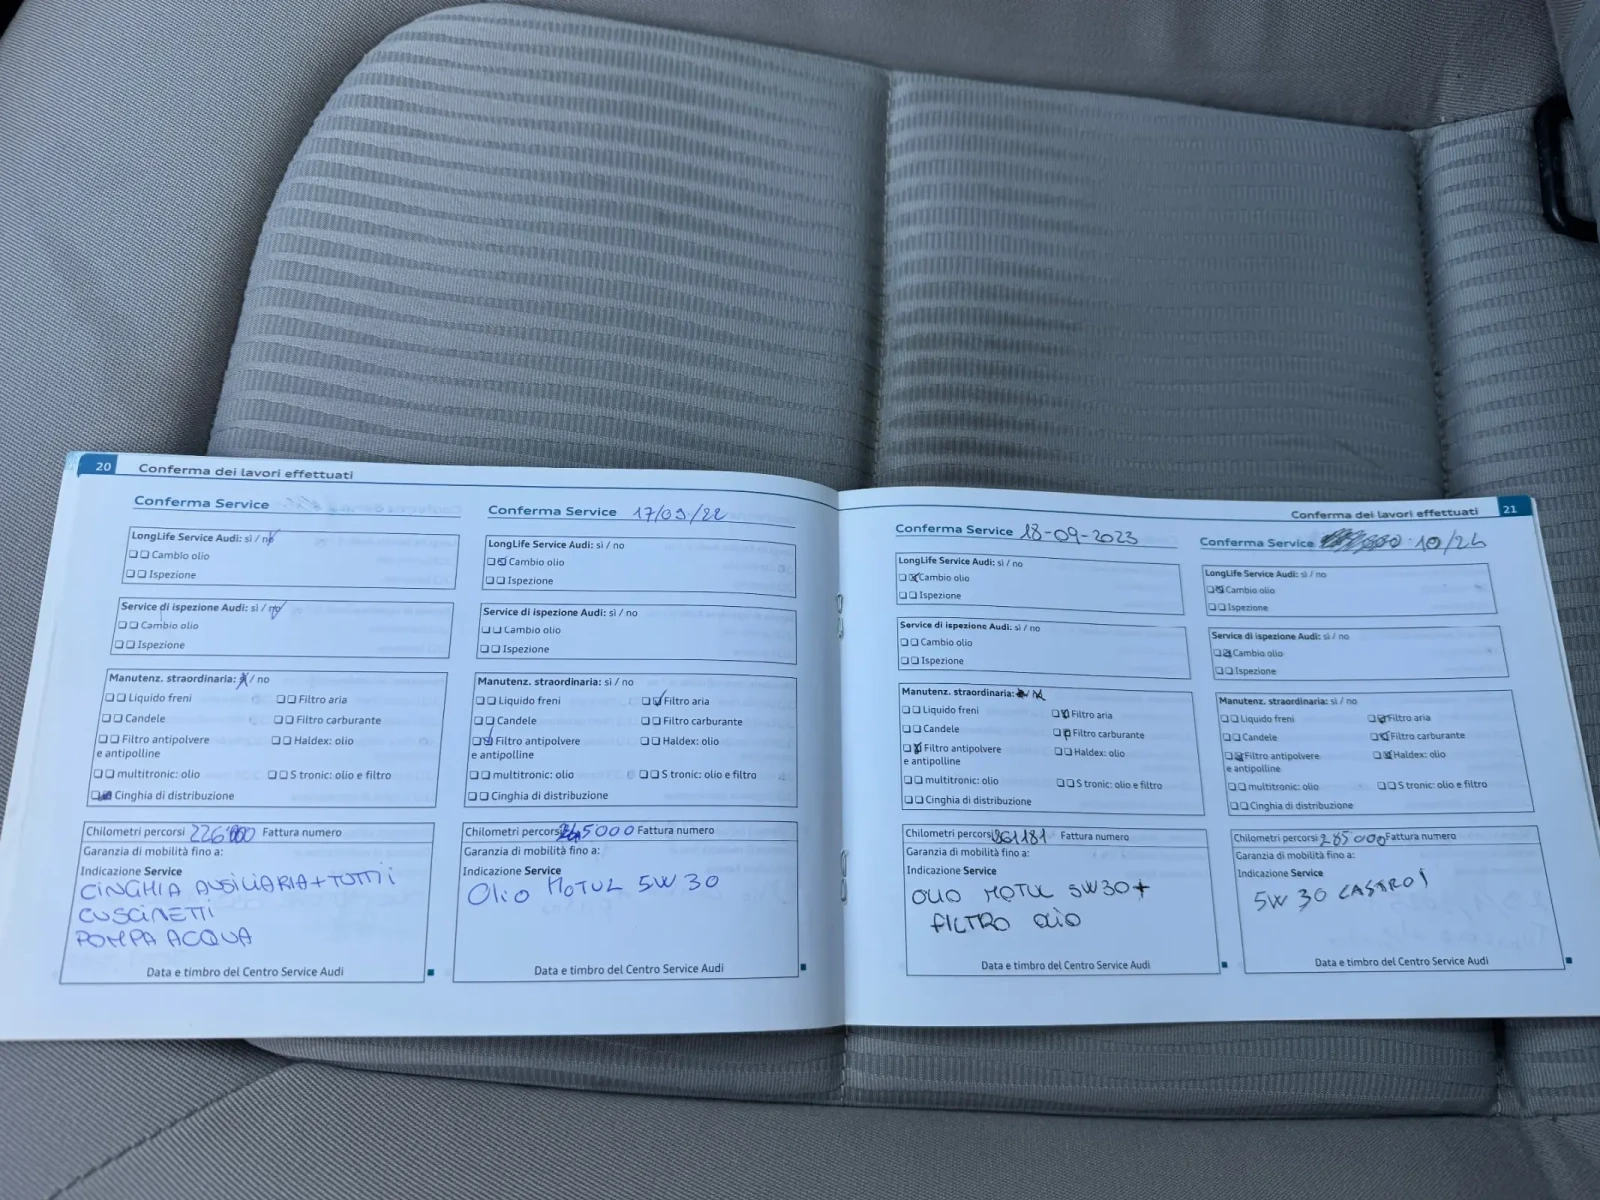 20 Conferma dei lavori effettuati
Conferma Service
LongLife Service Audi: sì / no
Cambio olio
Ispezione
Service di ispezione Audi: sì / no
Cambio olio
Ispezione
Manutenz. straordinaria: sì / no
Liquido freni Filtro aria
Candele Filtro carburante
Filtro antipolvere Haldex: olio
e antipolline
multitronic: olio S tronic: olio e filtro
Cinghia di distribuzione
Chilometri percorsi 226'000 Fattura numero
Garanzia di mobilità fino a:
Indicazione Service
CINGHIA AUSILIARIA + TUTTI i
CUSCINETTI
POMPA ACQUA
Data e timbro del Centro Service Audi
Conferma Service 17/09/22
LongLife Service Audi: sì / no
Cambio olio
Ispezione
Service di ispezione Audi: sì / no
Cambio olio
Ispezione
Manutenz. straordinaria: sì / no
Liquido freni Filtro aria
Candele Filtro carburante
Filtro antipolvere Haldex: olio
e antipolline
multitronic: olio S tronic: olio e filtro
Cinghia di distribuzione
Chilometri percorsi 245000 Fattura numero
Garanzia di mobilità fino a:
Indicazione Service
Olio MOTUL 5W 30
Data e timbro del Centro Service Audi
Conferma dei lavori effettuati 21
Conferma Service 18-09-2023
LongLife Service Audi: sì / no
Cambio olio
Ispezione
Service di ispezione Audi: sì / no
Cambio olio
Ispezione
Manutenz. straordinaria:
Liquido freni Filtro aria
Candele Filtro carburante
Filtro antipolvere Haldex: olio
e antipolline
multitronic: olio S tronic: olio e filtro
Cinghia di distribuzione
Chilometri percorsi Fattura numero
Garanzia di mobilità fino a:
Indicazione Service
OLIO MOTUL 5W30 +
FILTRO OLIO
Data e timbro del Centro Service Audi
Conferma Service 10/24
LongLife Service Audi: sì / no
Cambio olio
Ispezione
Service di ispezione Audi: sì / no
Cambio olio
Ispezione
Manutenz. straordinaria: sì / no
Liquido freni Filtro aria
Candele Filtro carburante
Filtro antipolvere Haldex: olio
e antipolline
multitronic: olio S tronic: olio e filtro
Cinghia di distribuzione
Chilometri percorsi 285000 Fattura numero
Garanzia di mobilità fino a:
Indicazione Service
5W 30 CASTROl
Data e timbro del Centro Service Audi